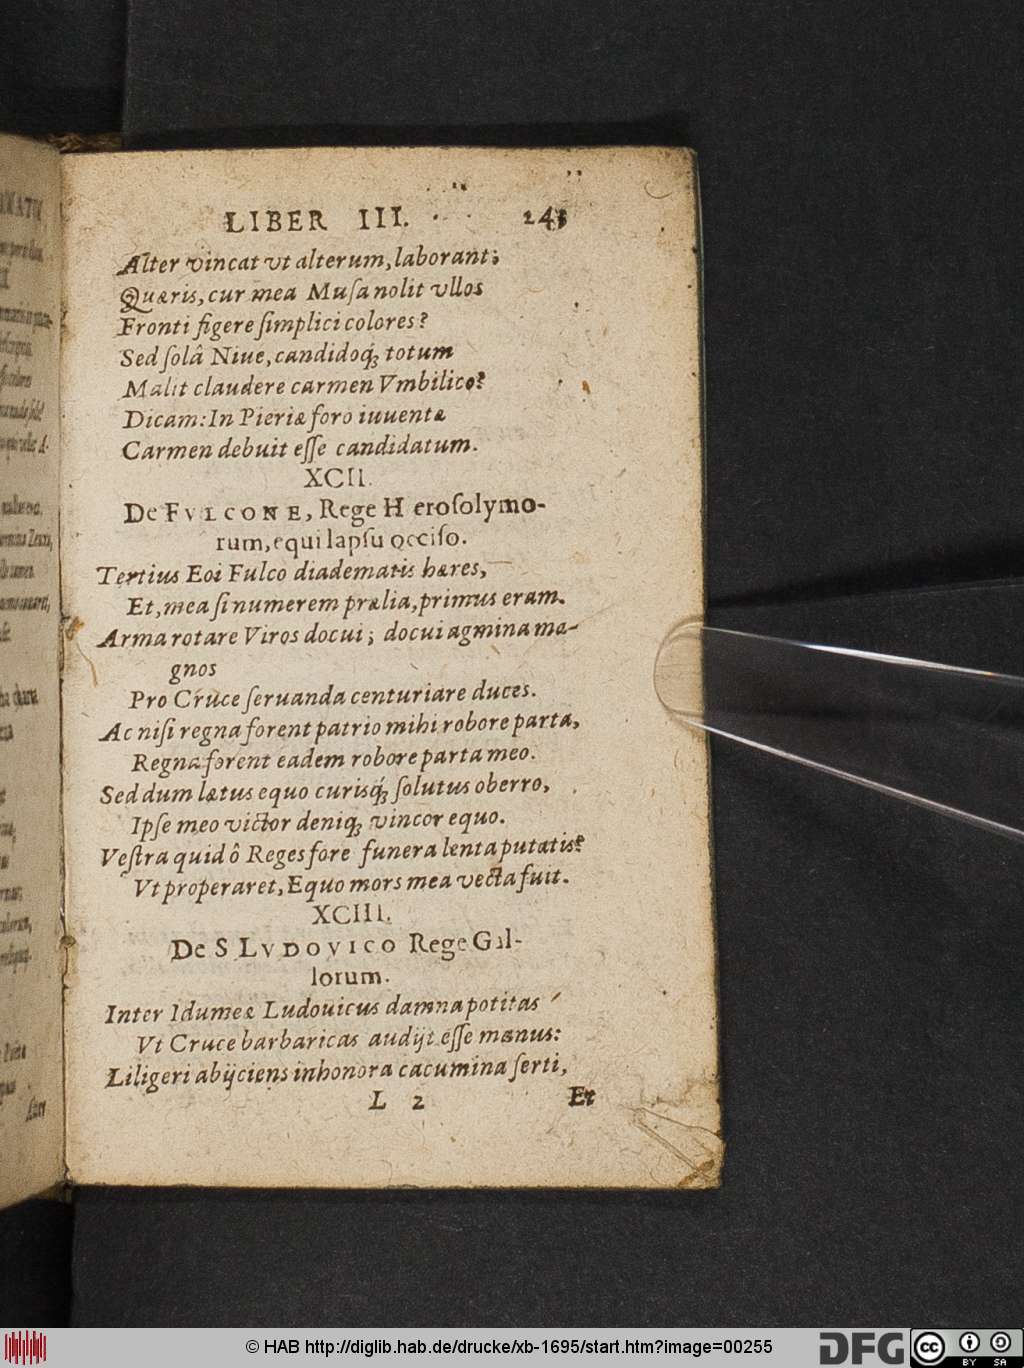 LIBER III. 243
Alter vincat vt alterum, laborant;
Quæris, cur mea Musa nolit vllos
Fronti figere simplici colores?
Sed solâ Niue, candidoq́; totum
Malit claudere carmen Vmbilico?
Dicam: In Pieriæ foro iuuentæ
Carmen debuit esse candidatum.
XCII.
De FVLCONE, Rege Hierosolymo-
rum, equi lapsu occiso.
Tertius Eoi Fulco diadematis hæres,
Et, mea si numerem prælia, primus eram.
Arma rotare Viros docui; docui agmina ma-
gnos
Pro Cruce seruanda centuriare duces.
Ac nisi regna forent patrio mihi robore parta,
Regna forent eadem robore parta meo.
Sed dum lætus equo curisq́; solutus oberro,
Ipse meo victor deniq; vincor equo.
Vestra quid ô Reges fore funera lenta putatis?
Vt properaret, Equo mors mea vecta fuit.
XCIII.
De S LVDOVICO Rege Gal-
lorum.
Inter Idumeæ Ludouicus damna potitas
Vt Cruce barbaricas audijt esse manus:
Liligeri abijciens inhonora cacumina serti,
L 2 Et
© HAB http://diglib.hab.de/drucke/xb-1695/start.htm?image=00255
DFG cc BY SA